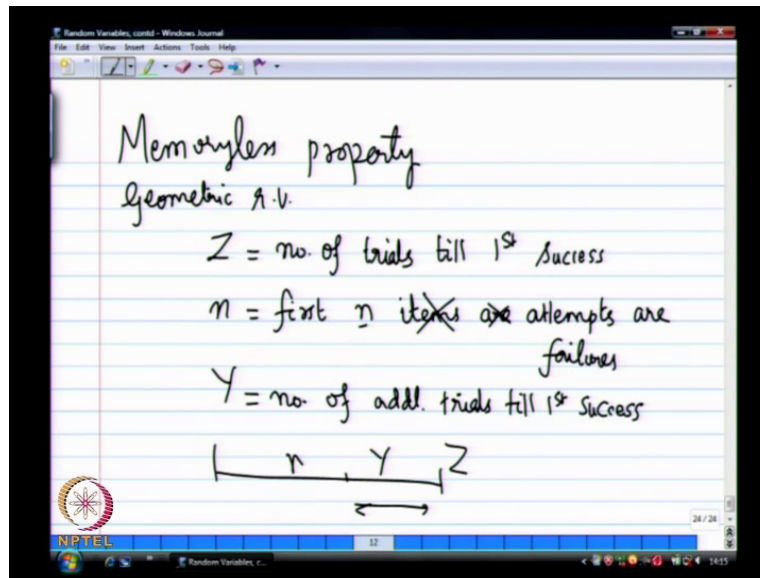 Random Variables, contd - Windows Journal
File Edit View Insert Actions Tools Help
Memoryless property
Geometric r.v.
Z = no. of trials till 1st success
n = first n items are attempts are
failures
Y = no. of addl. trials till 1st success
n Y Z
24 / 24
NPTEL
12
Random Variables, c...
14:15